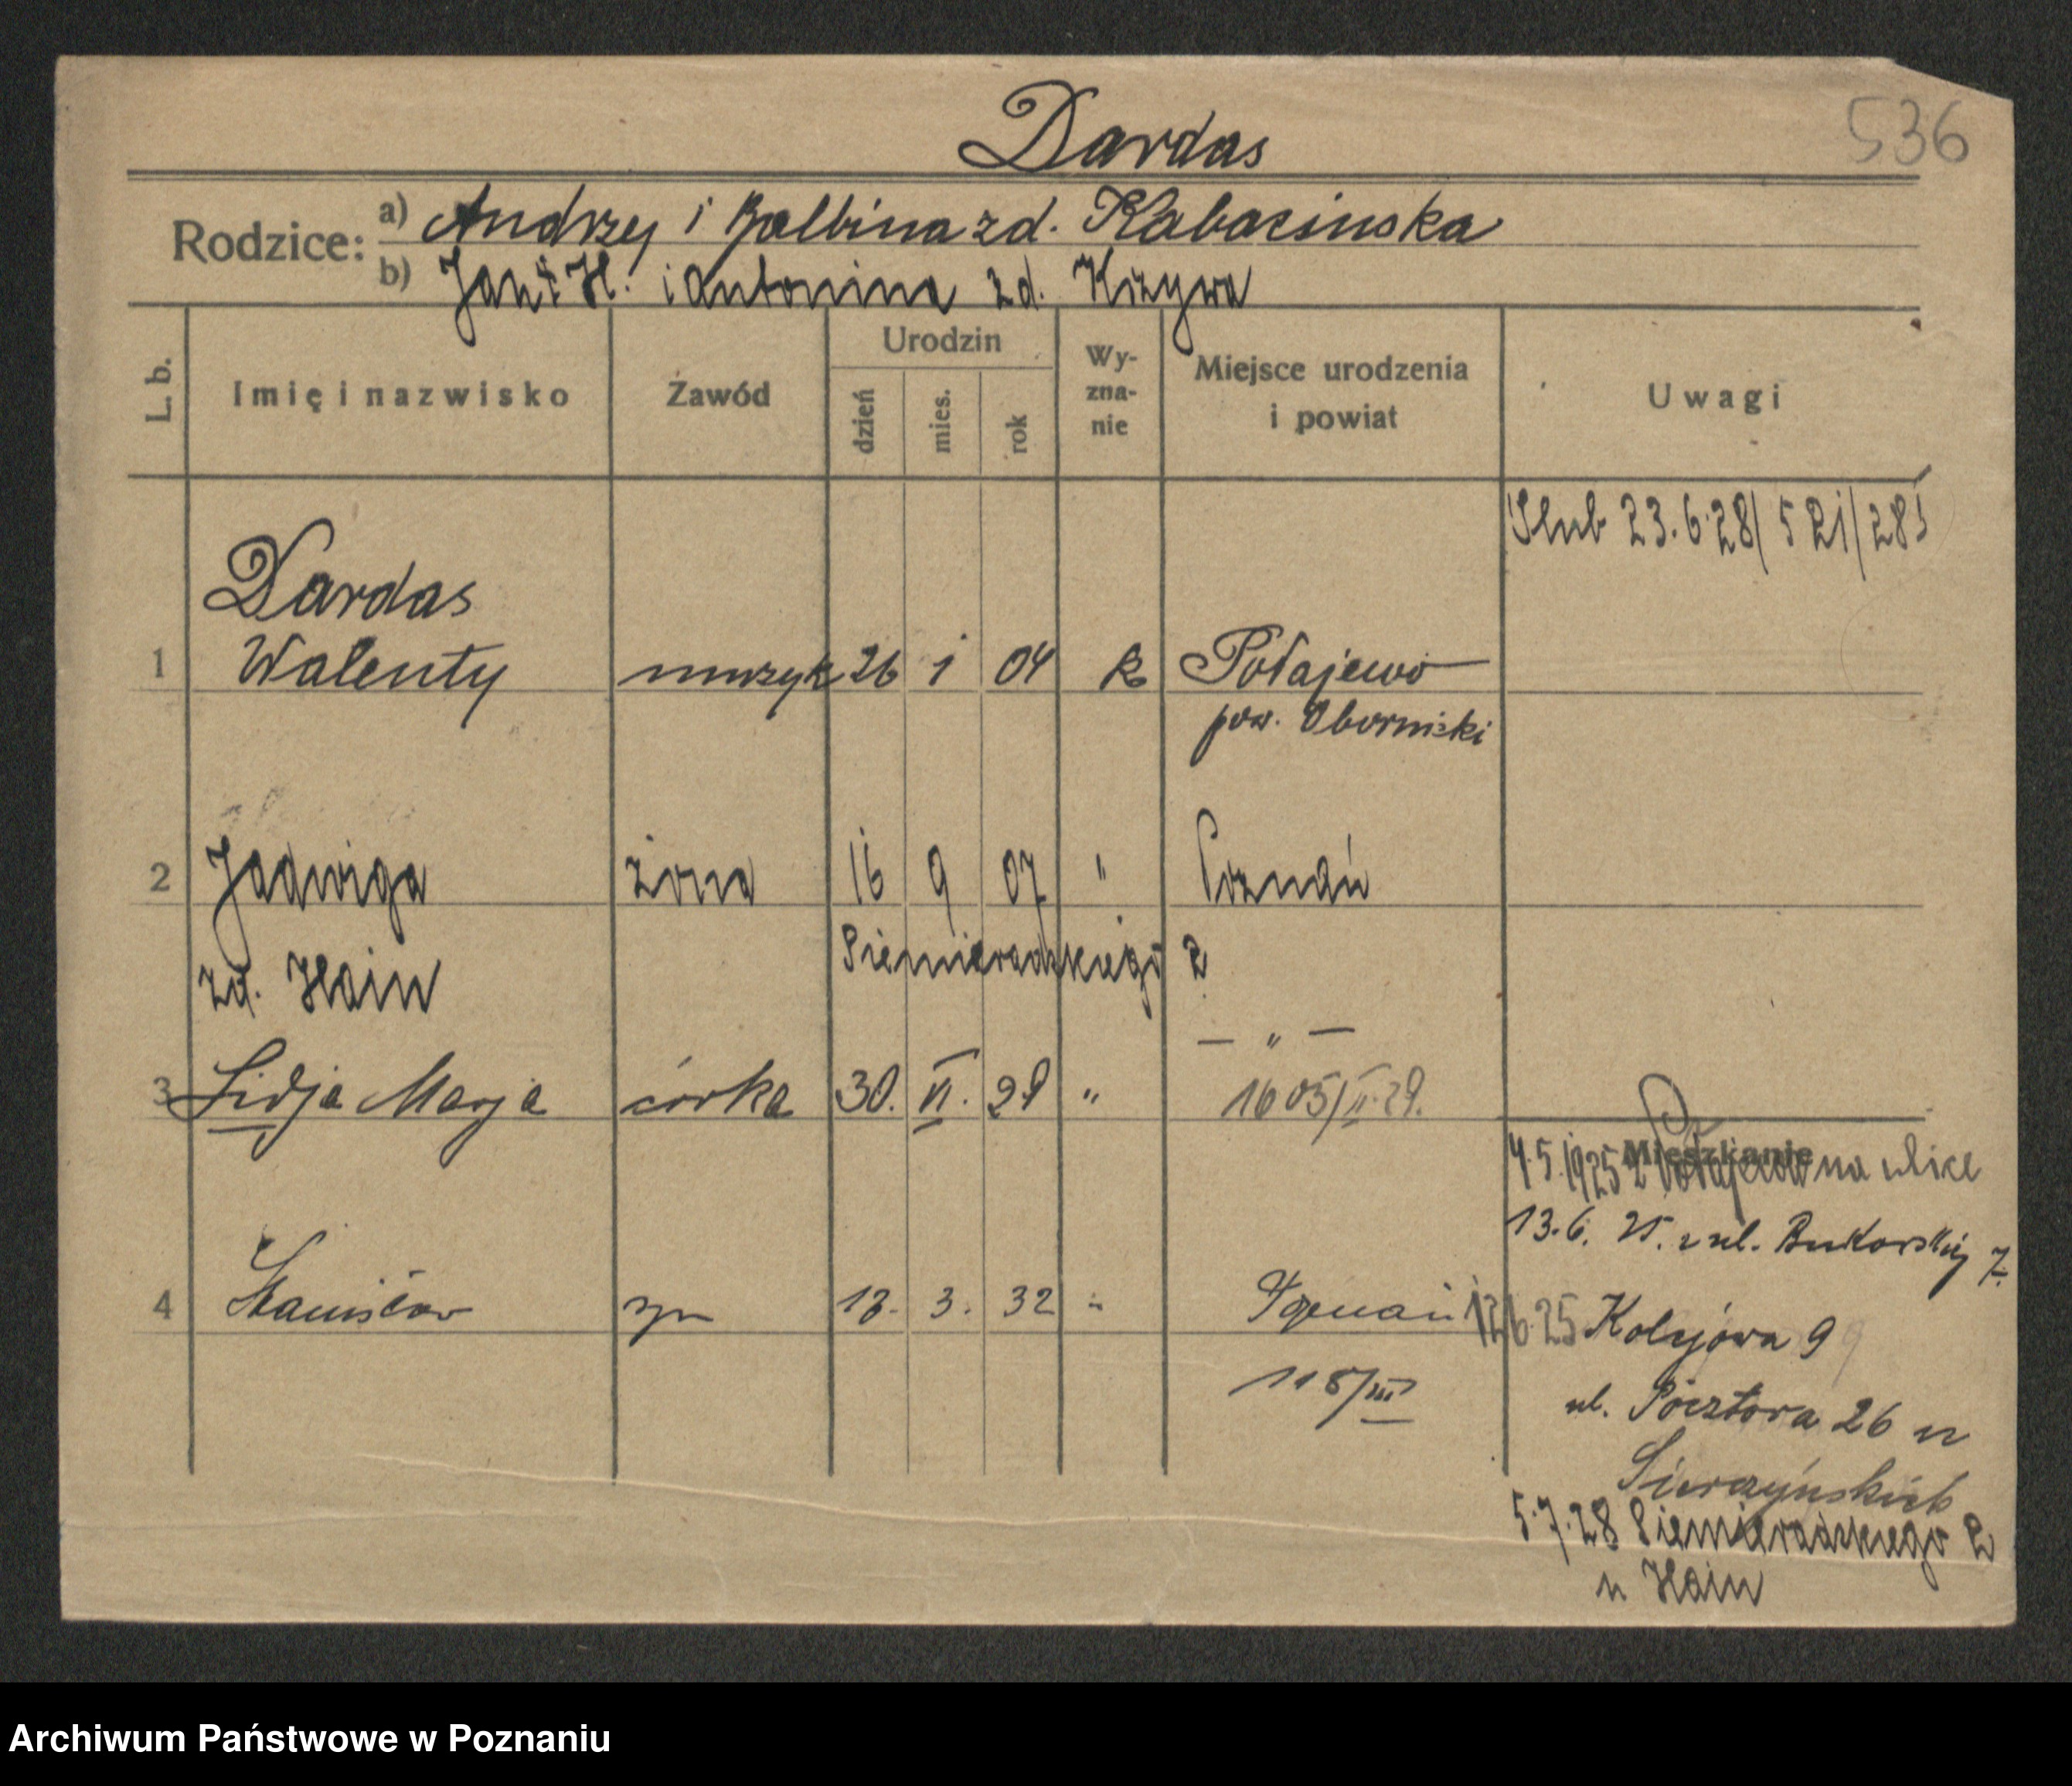 Dardas
536
Rodzice: a) Andrzej i Balbina zd. Kabacinska
b) Jan i Antonina zd. Krzywa
L. b.
Imię i nazwisko
Zawód
Urodzin
dzień
mies.
rok
Wy-
zna-
nie
Miejsce urodzenia
i powiat
Uwagi
Slub 23.6.28/ 521/28
Dardas
1 Walenty muzyk 26 1 04 R Połajewo
pow. Obornicki
2 Jadwiga żona 16 9 07 " Poznań
zd. Hain Siemieradzkiego 2
— " —
3 Lidja Marja córka 30. VI. 29 " 1605/II.29.
Mieszkanie
4.5.1925 z Połajewo na ulice
13.6.25. z ul. Bukowskiej 7.
4 Stanisław syn 13. 3. 32 " Poznań
12 6.25 Kolejowa 9
118/III
ul. Pocztowa 26 u
Sierszyńskich
5.7.28 Siemieradzkiego 2
u Hain
Archiwum Państwowe w Poznaniu